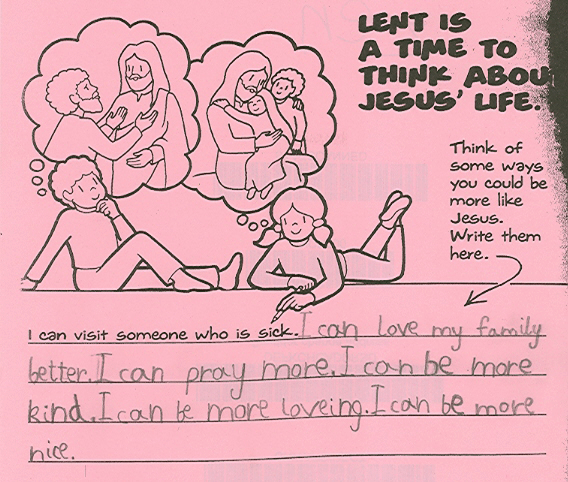 LENT IS
A TIME TO
THINK ABOU
JESUS' LIFE.
Think of
some ways
you could be
more like
Jesus.
Write them
here.
I can visit someone who is sick. I can love my family
better. I can pray more. I can be more
kind. I can be more loveing. I can be more
nice.